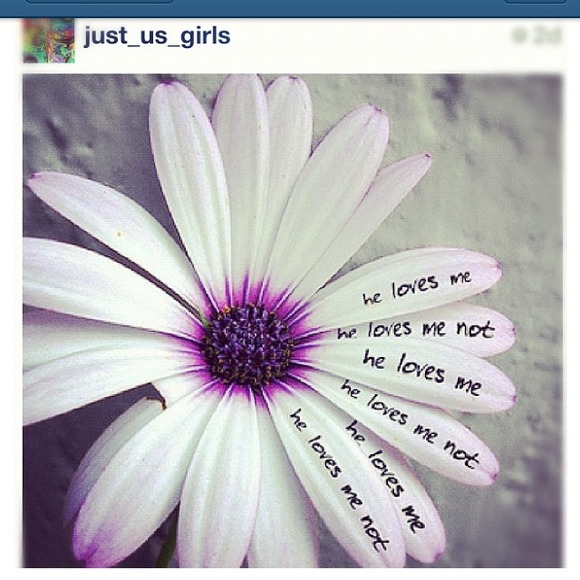 just_us_girls
2d
he loves me
he loves me not
he loves me
he loves me not
he loves me
he loves me not